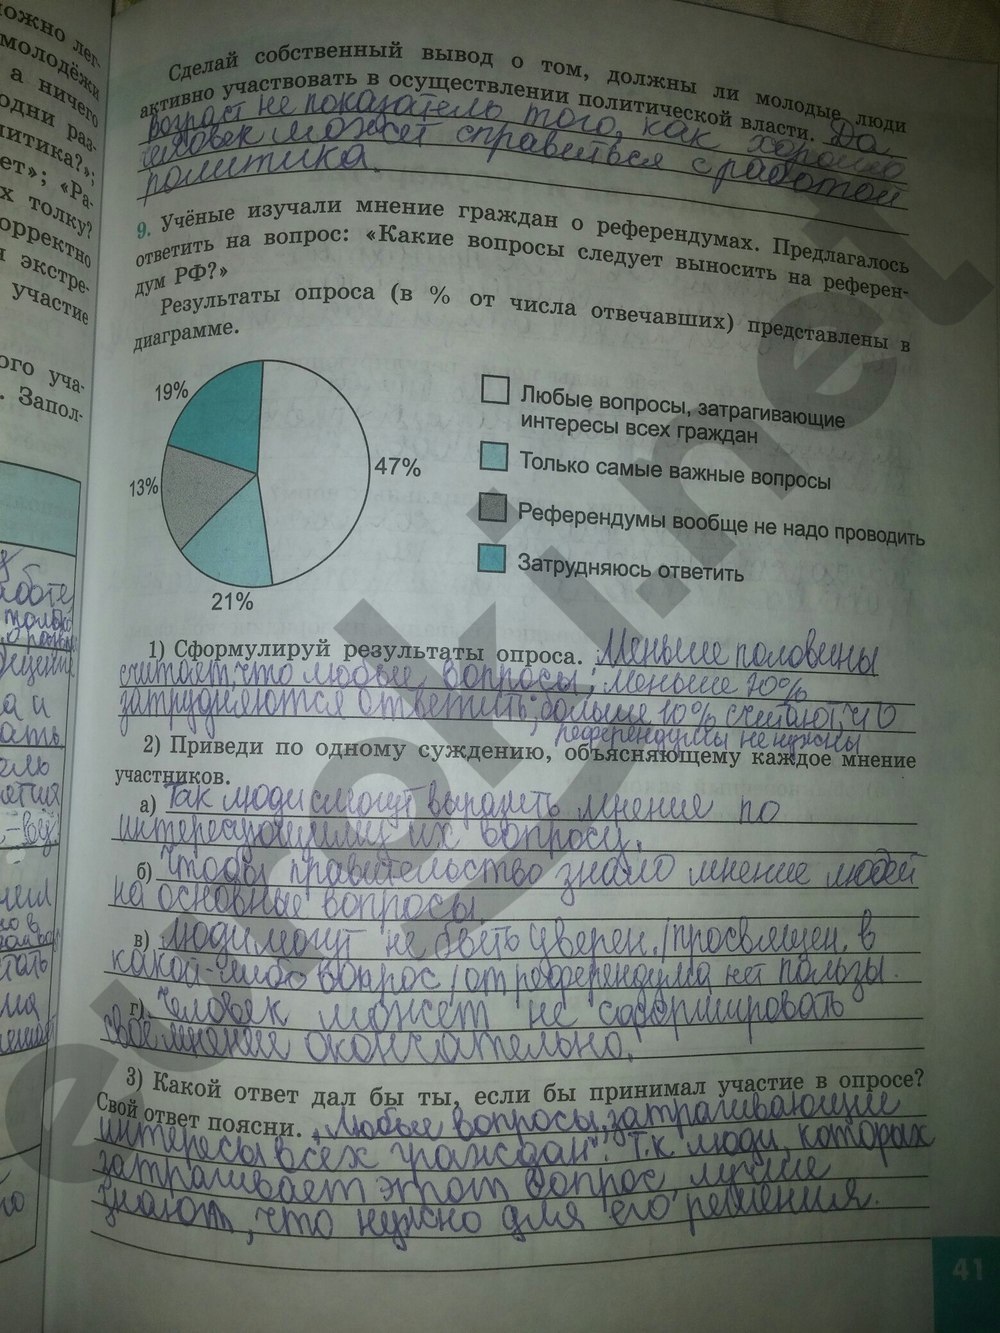 ожно лег-
молодёжи
а ничего
одни раз-
литика?»;
ет»; «Ра-
х толку?
орректно
и экстре-
участие
ого уча-
. Запол-
Сделай собственный вывод о том, должны ли молодые люди
активно участвовать в осуществлении политической власти. Да
возраст не показатель того, как хорошо
человек может справиться с работой
политика.
9. Учёные изучали мнение граждан о референдумах. Предлагалось
ответить на вопрос: «Какие вопросы следует выносить на референ-
дум РФ?»
Результаты опроса (в % от числа отвечавших) представлены в
диаграмме.
19%
47%
13%
21%
Любые вопросы, затрагивающие
интересы всех граждан
Только самые важные вопросы
Референдумы вообще не надо проводить
Затрудняюсь ответить
1) Сформулируй результаты опроса. Меньше половины
считает, что любые вопросы; меньше 20%
затрудняются ответить; больше 10% считают, что
референдумы не нужны
2) Приведи по одному суждению, объясняющему каждое мнение
участников.
а) Так люди смогут выразить мнение по
интересующему их вопросу.
б) Чтобы правительство знало мнение людей
на основные вопросы.
в) Люди могут не быть уверен./просвящен. в
какой-либо вопрос/от референдума нет пользы.
г) Человек может не сформировать
своё мнение окончательно.
3) Какой ответ дал бы ты, если бы принимал участие в опросе?
Свой ответ поясни. „Любые вопросы, затрагивающие
интересы всех граждан". Т.к. люди, которых
затрагивает этот вопрос лучше
знают, что нужно для его решения.
41
euroki.net